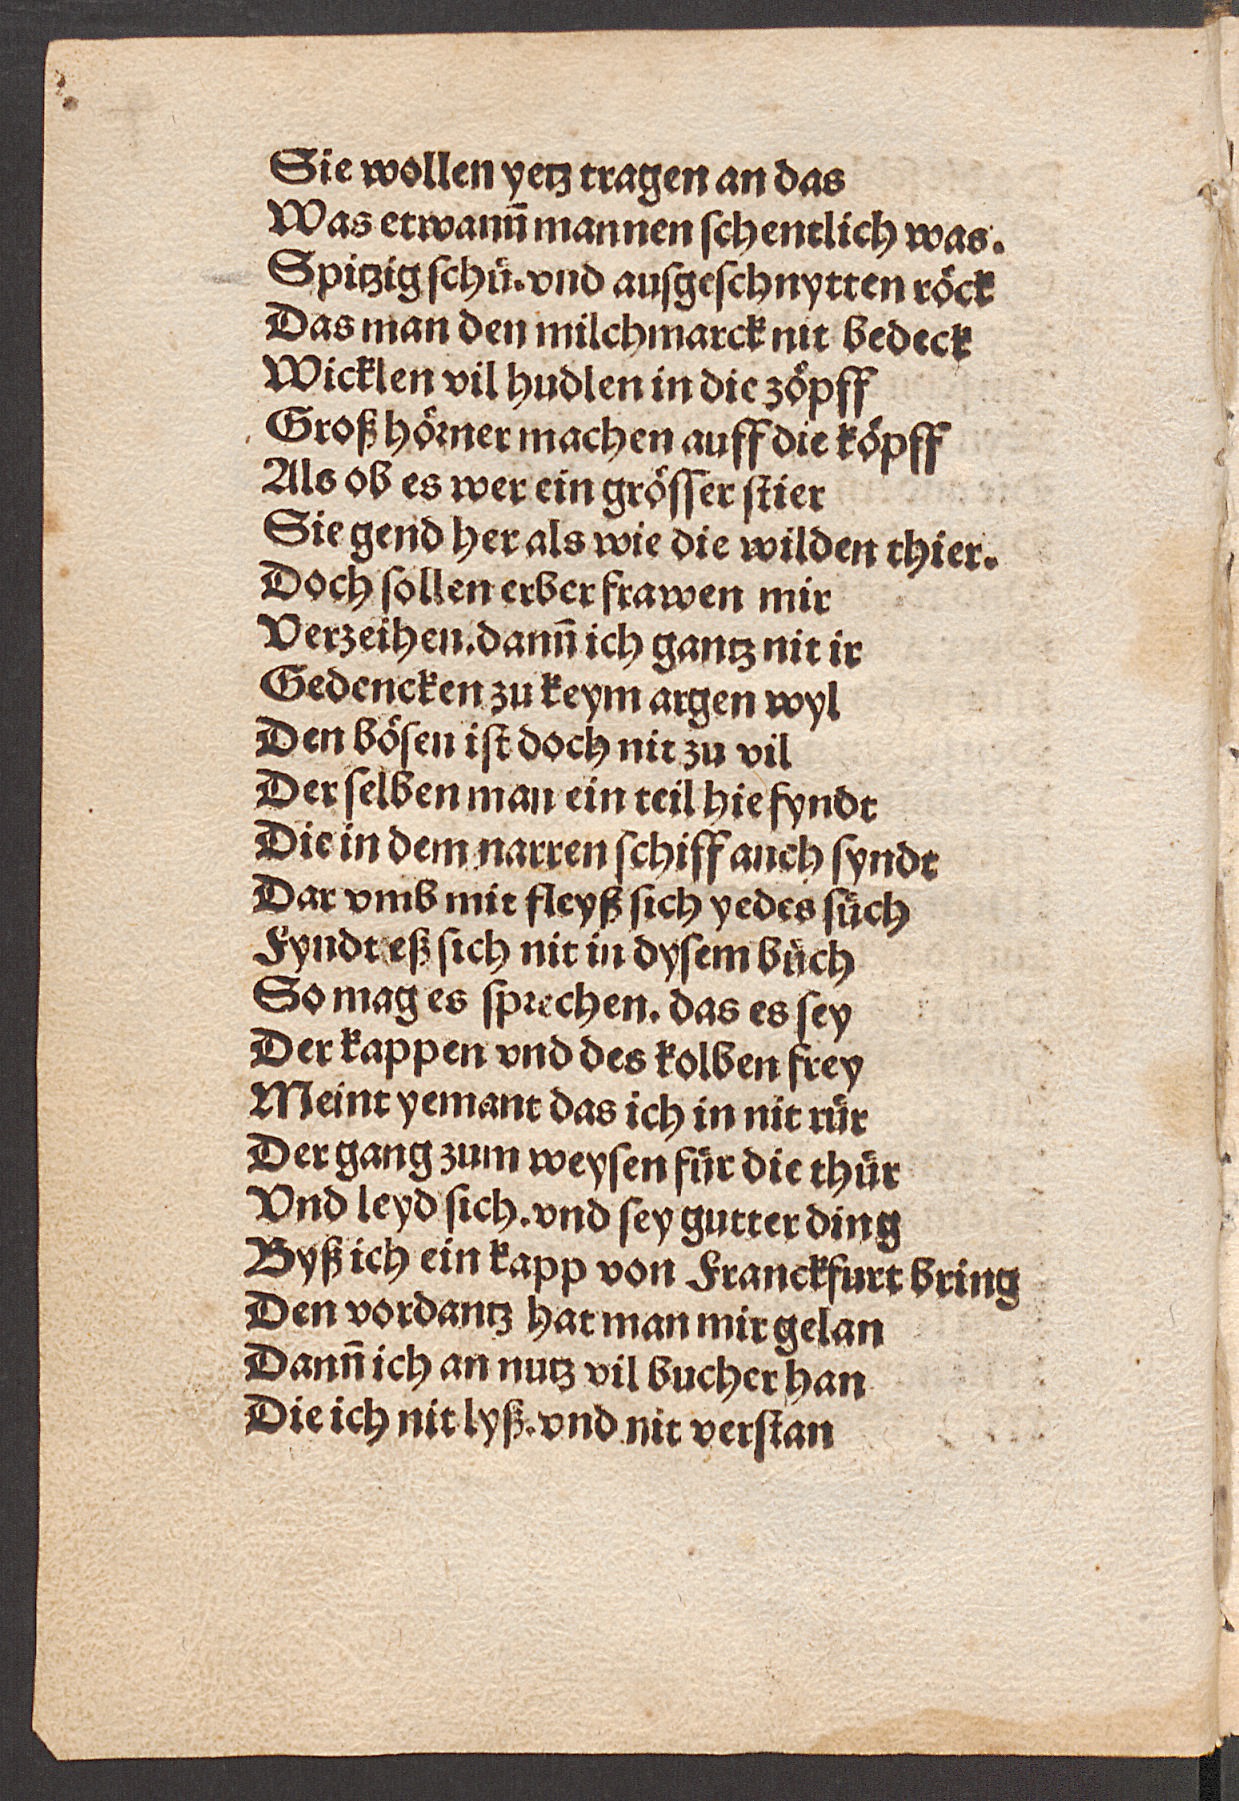 Sie wollen yetz tragen an das
Was etwann̄ mannen ſchentlich was.
Spitzig ſchü. vnd ausgeſchnytten röck
Das man den milchmarck nit bedeck
Wicklen vil hudlen in die zöpff
Groß hörner machen auff die köpff
Als ob es wer ein gröſſer ſtier
Sie gend her als wie die wilden thier.
Doch ſollen erber frawen mir
Verzeihen. dann̄ ich gantz nit ir
Gedencken zu keym argen wyl
Den böſen iſt doch nit zu vil
Der ſelben man ein teil hie fyndt
Die in dem narren ſchiff auch ſyndt
Dar vmb mit fleyß ſich yedes ſüch
Fyndt eß ſich nit in dyſem büch
So mag es ſprechen. das es ſey
Der kappen vnd des kolben frey
Meint yemant das ich in nit rür
Der gang zum weyſen für die thür
Vnd leyd ſich. vnd ſey gutter ding
Byß ich ein kapp von Franckfurt bring
Den vordantz hat man mir gelan
Dann̄ ich an nutz vil bucher han
Die ich nit lyß. vnd nit verſtan